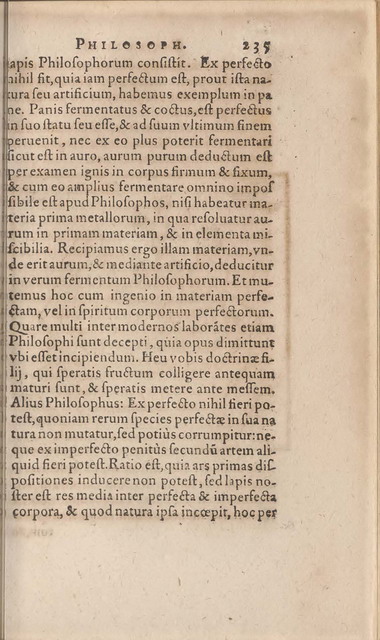 PHILOSOPH. 235
lapis Philosophorum consistit. Ex perfecto
nihil fit, quia iam perfectum est, prout ista na-
tura seu artificium, habemus exemplum in pa
ne. Panis fermentatus & coctus, est perfectus
in suo statu seu esse, & ad suum vltimum finem
peruenit, nec ex eo plus poterit fermentari
sicut est in auro, aurum purum deductum est
per examen ignis in corpus firmum & fixum,
& cum eo amplius fermentare omnino impos
sibile est apud Philosophos, nisi habeatur ma-
teria prima metallorum, in qua resoluatur au-
rum in primam materiam, & in elementa mi-
scibilia. Recipiamus ergo illam materiam, vn-
de erit aurum, & mediante artificio, deducitur
in verum fermentum Philosophorum. Et mu-
temus hoc cum ingenio in materiam perfe-
ctam, vel in spiritum corporum perfectorum.
Quare multi inter modernos laborãtes etiam
Philosophi sunt decepti, quia opus dimittunt
vbi esset incipiendum. Heu vobis doctrinæ fi-
lij, qui speratis fructum colligere antequam
maturi sunt, & speratis metere ante messem.
Alius Philosophus: Ex perfecto nihil fieri po-
test, quoniam rerum species perfectæ in sua na
tura non mutatur, sed potiùs corrumpitur: ne-
que ex imperfecto penitùs secundũ artem ali-
quid fieri potest. Ratio est, quia ars primas dis-
positiones inducere non potest, sed lapis no-
ster est res media inter perfecta & imperfecta
corpora, & quod natura ipsa incœpit, hoc per